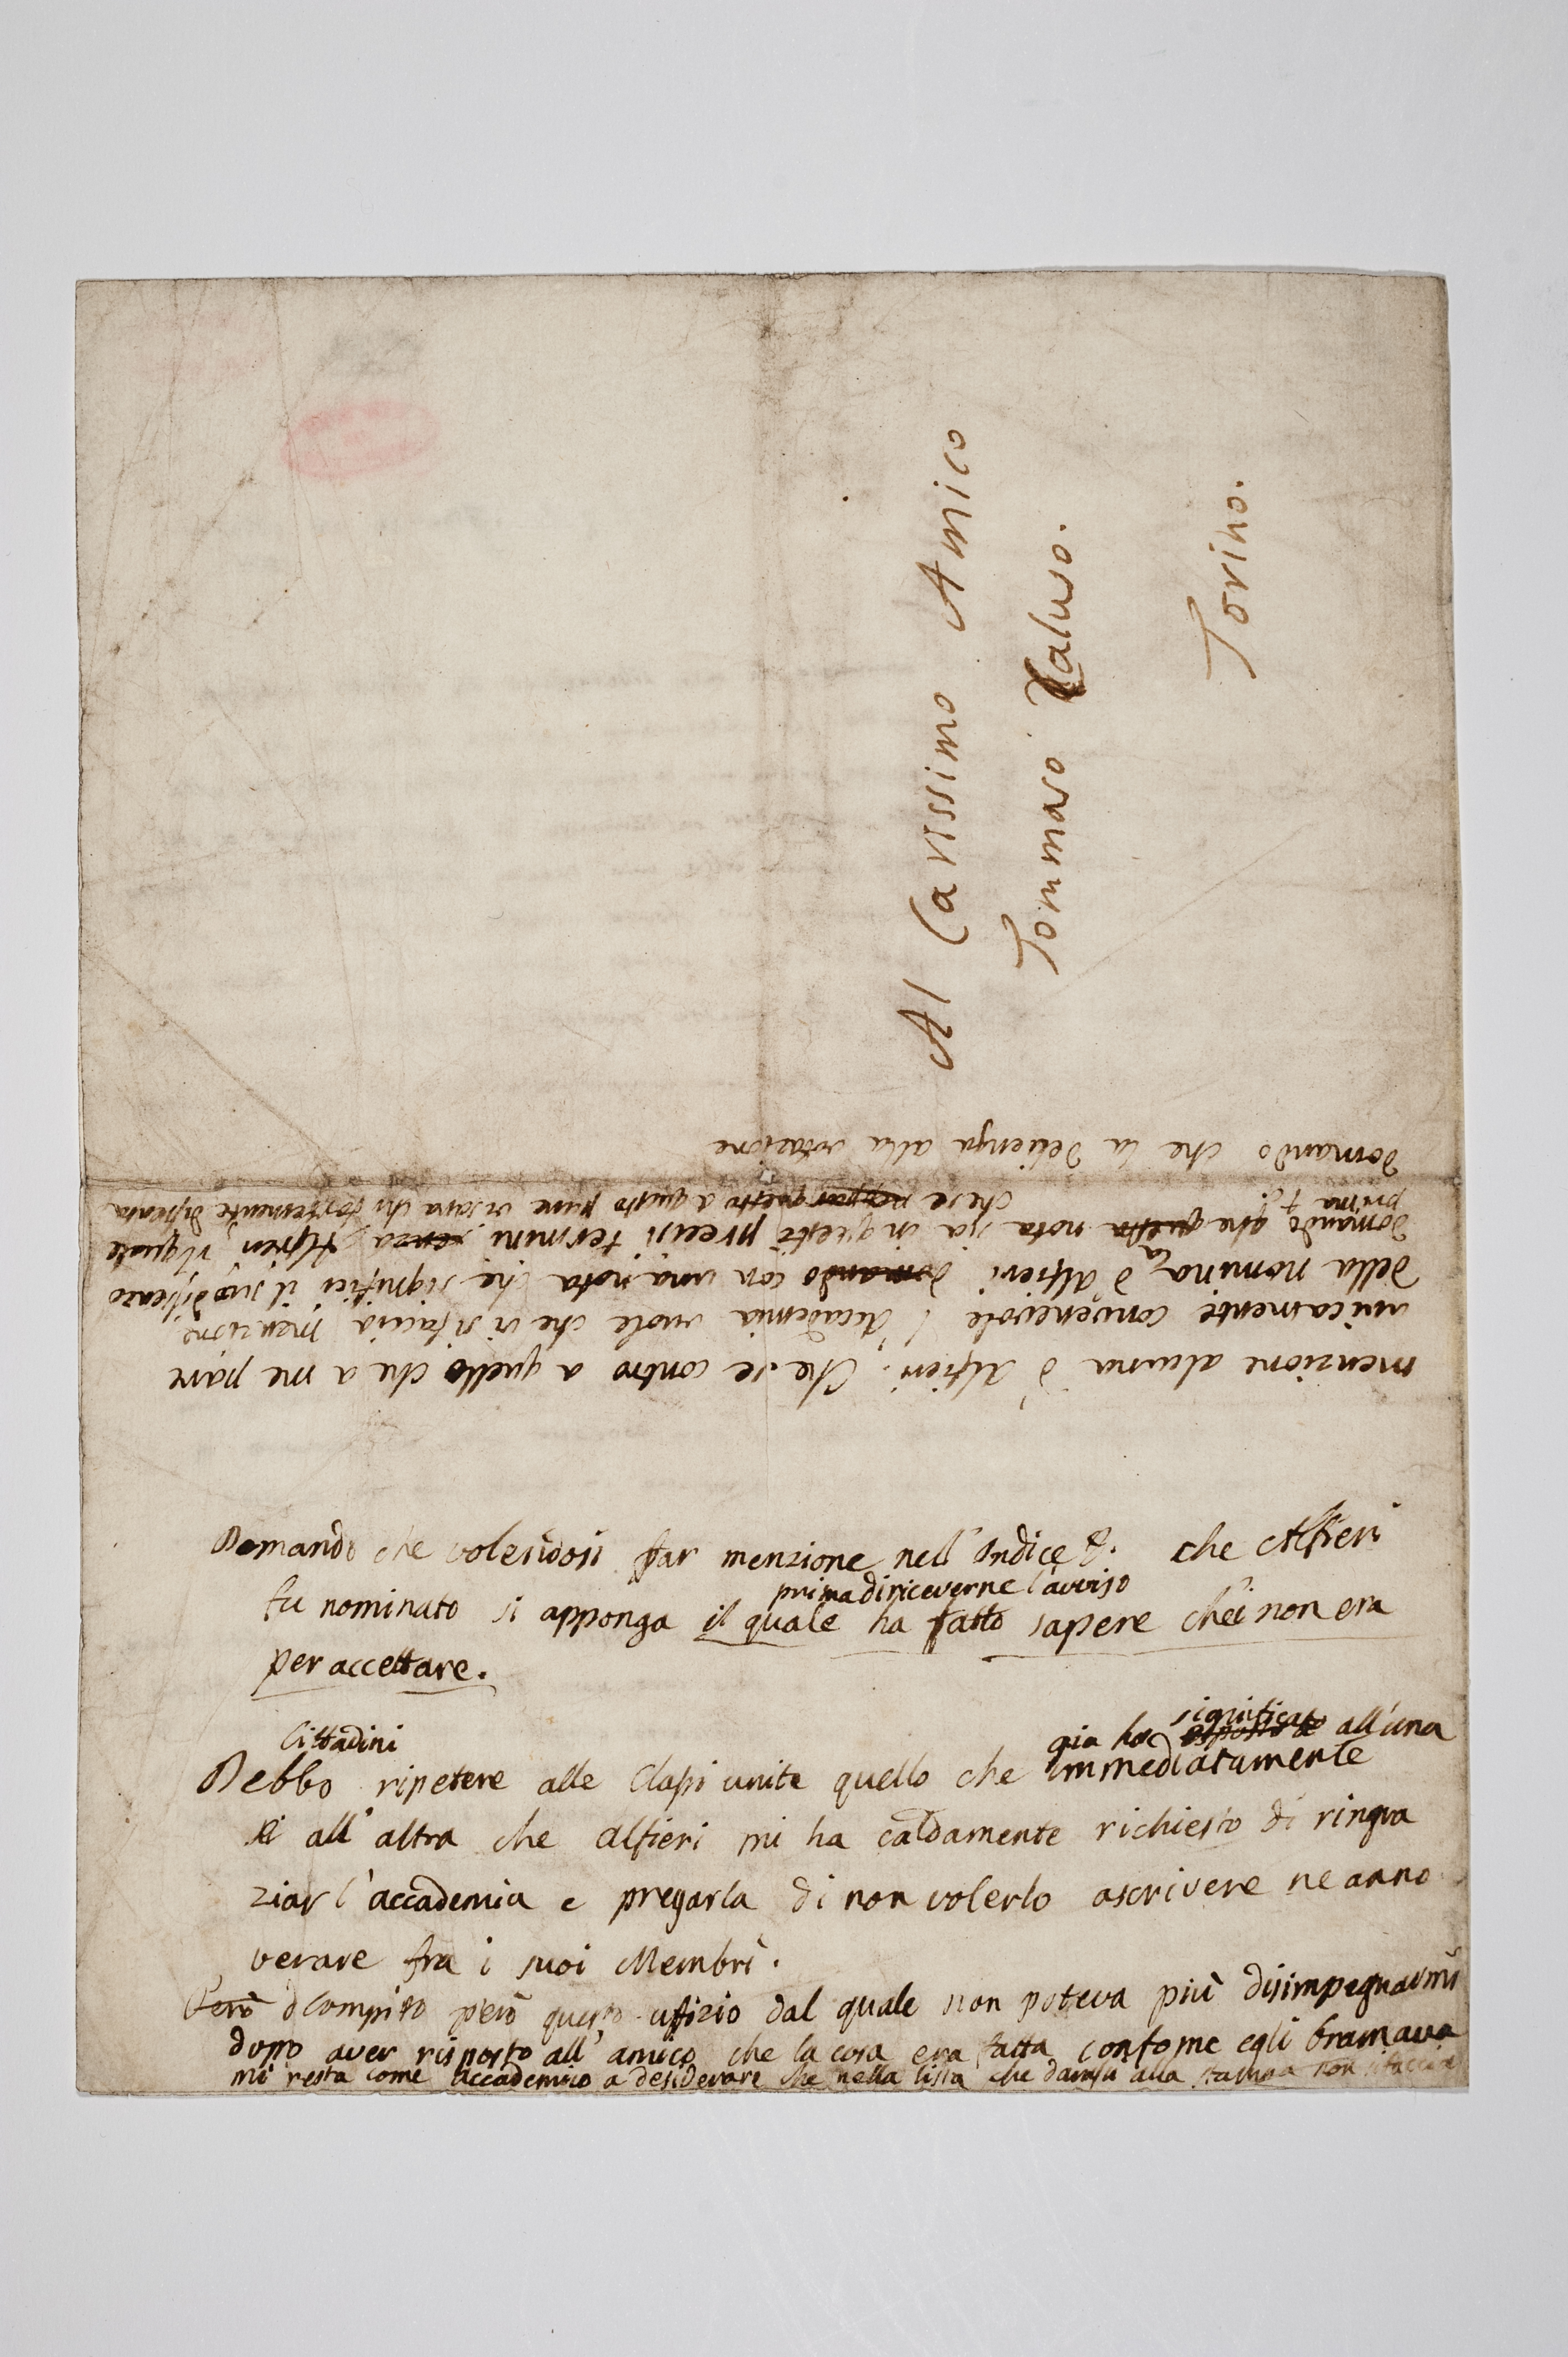 Al Carissimo Amico
Tommaso Caluso.
Torino.
Domando che volendosi far menzione nell'Indice &. che Alfieri
prima di riceverne l'avviso
fu nominato si apponga il quale ha fatto sapere che non era
per accettare.
Cittadini
significato
già ho esposto all'una
Debbo ripetere alle Classi unite quello che immediatamente
all'altra che Alfieri mi ha caldamente richiesto di ringra
ziar l'accademia e pregarla di non volerlo ascrivere ne anno
verare fra i suoi Membri.
Però Compito però questo ufizio dal quale non poteva più disimpegnarmi
dopo aver risposto all'amico che la cosa era fatta confome egli bramava
mi resta come accademico a desiderare che nella lista che darassi alla stampa non si faccia
menzione alcuna d'Alfieri. Che se contro a quello che a me pare
unicamente convenevole l'Accademia vuole che si faccia menzione
della nomina d'Alfieri domando con una nota che significhi il
domando che questa nota sia in questi precisi termini senza Alfieri, il quale
prima &c. che se neppur questo a questo pure vi sara chi
domando che la si venga alla votazione